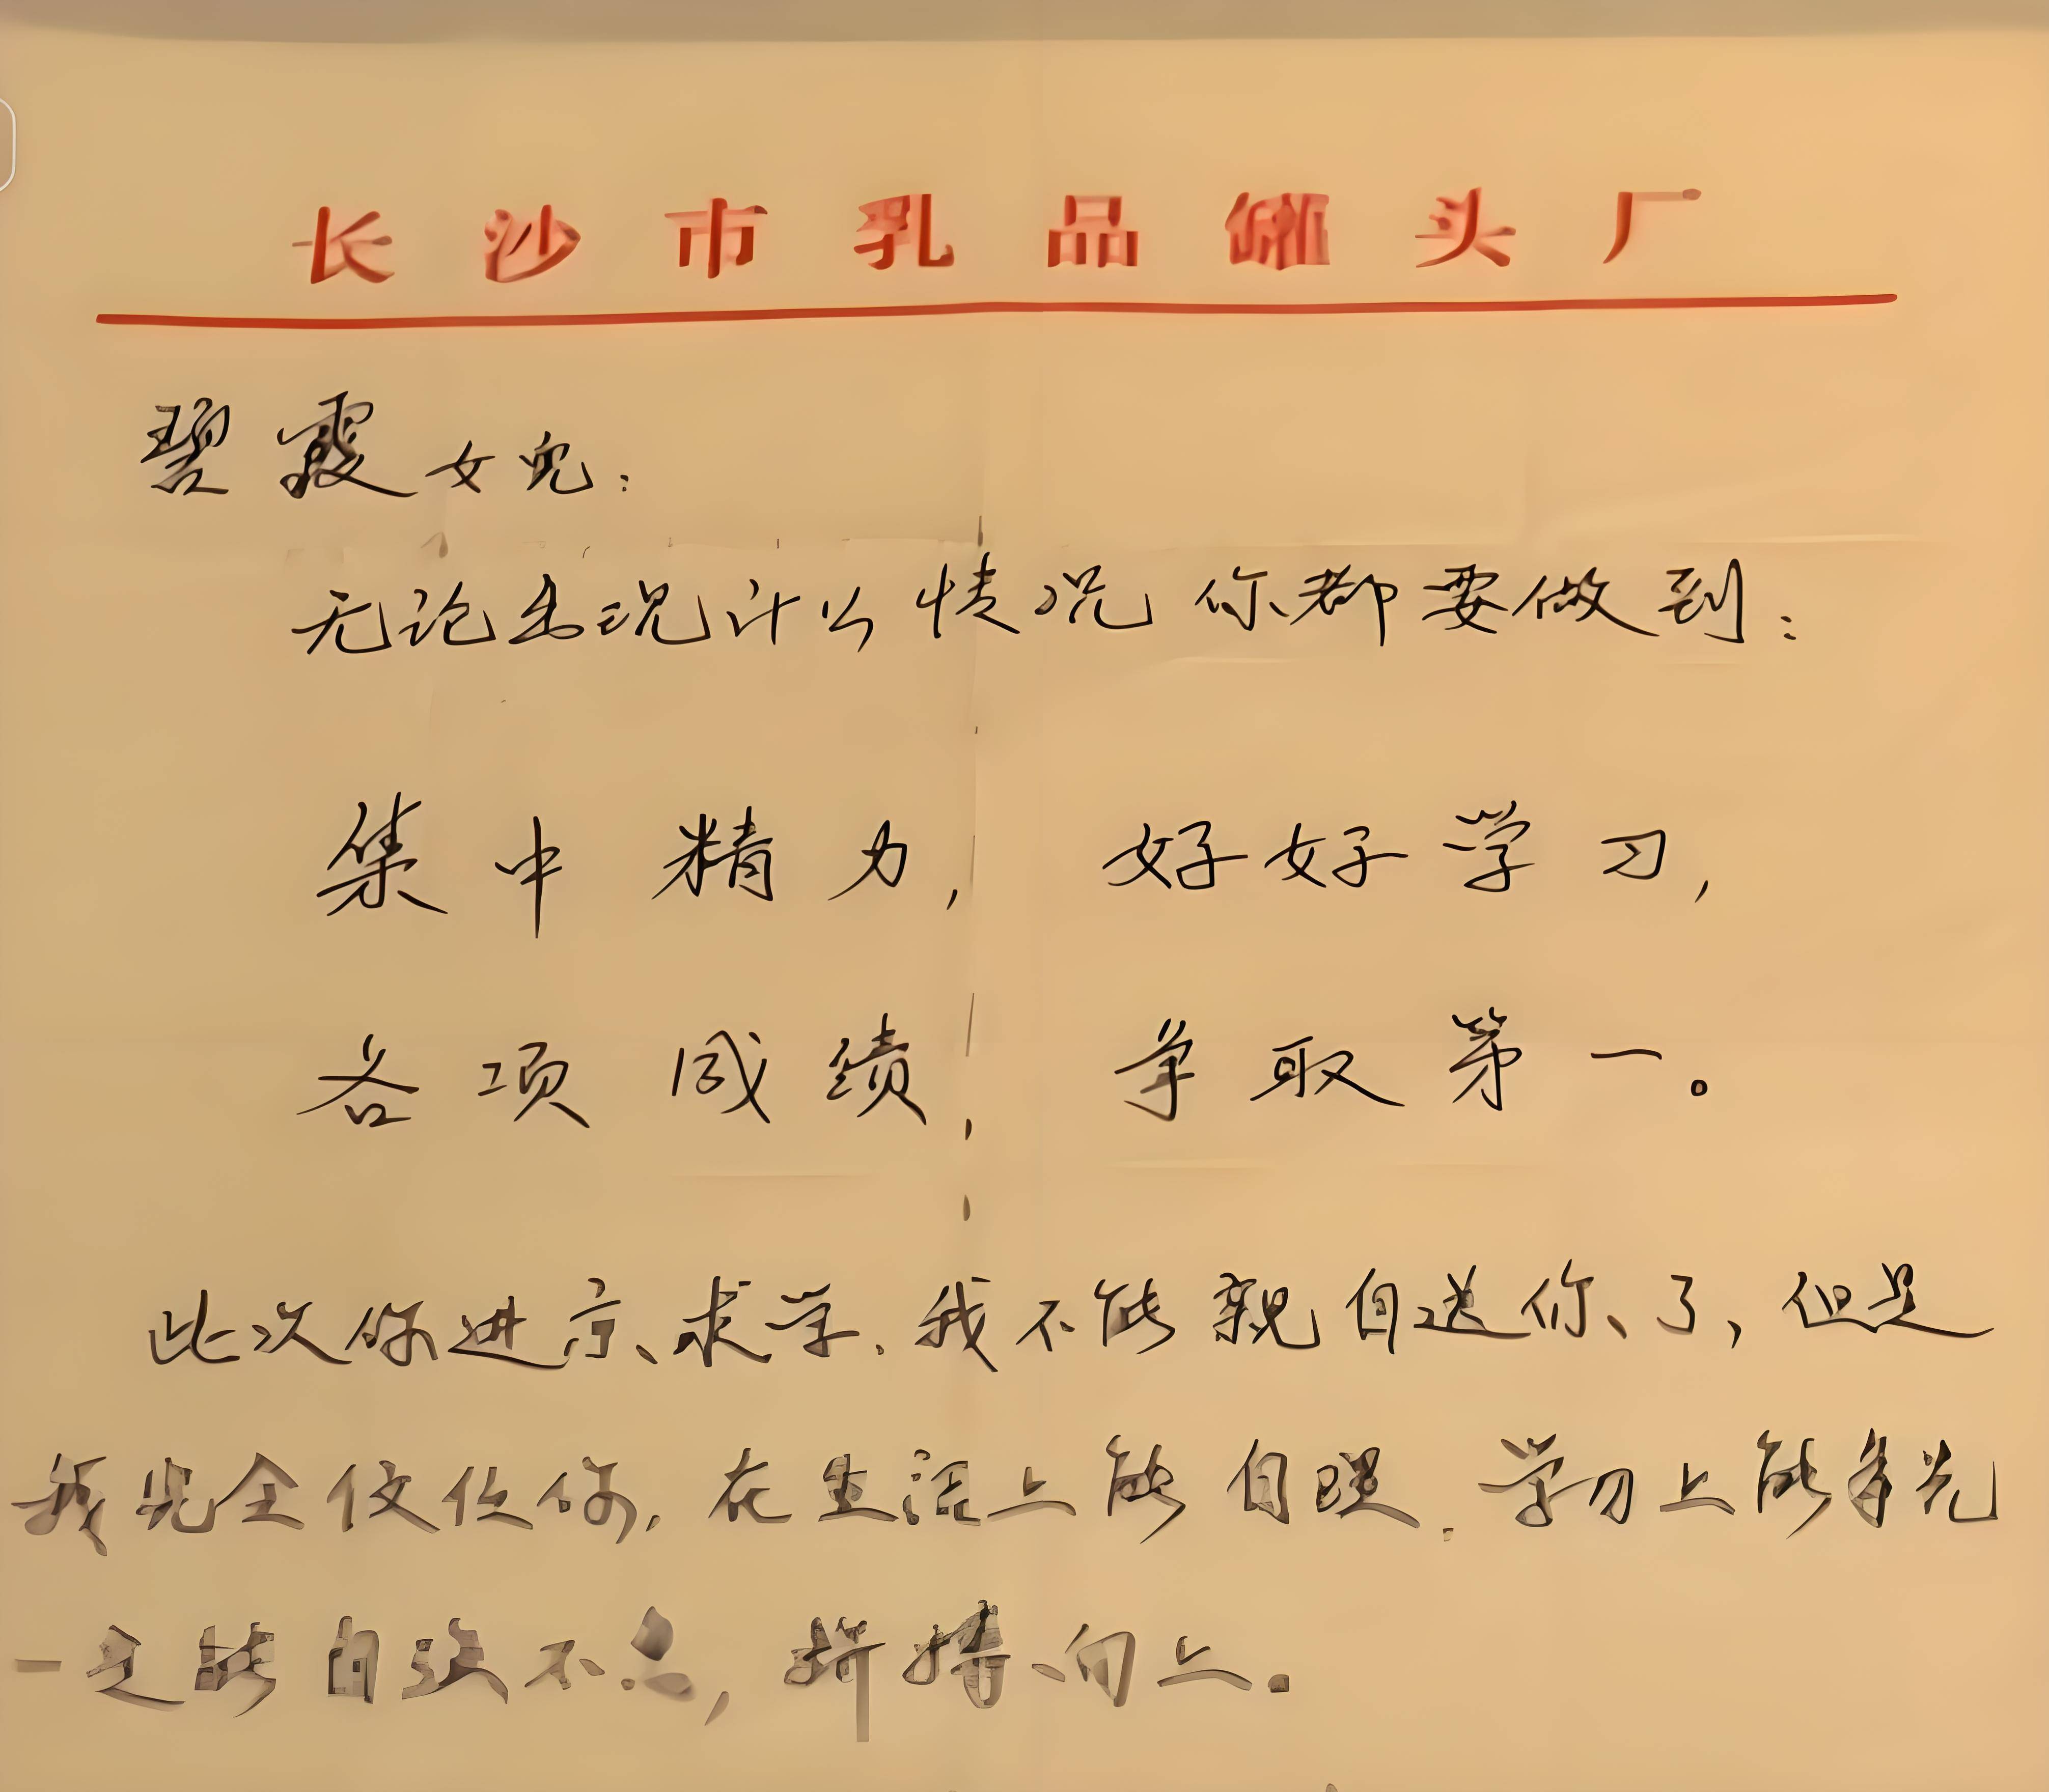 长沙市乳品罐头厂
碧霞女儿：
无论出现什么情况你都要做到：
集中精力，好好学习，
各项成绩，争取第一。
此次你进京求学，我不能亲自送你了，但是
我完全信任你，在生活上能自理，学习上能争先
一定能自强不息，拼搏向上。